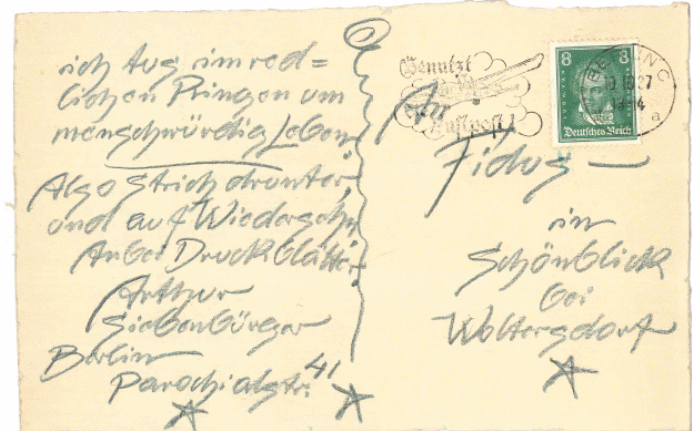 ich tug im red=
lichen Ringen um
menschwürdig Leben
Also Strich drunter,
und auf Wiedersehn
Anbei Druckblätter
Arthur
Siebenbürger
Berlin
Parochialstr. 41
Benutzt
die
Luftpost!
8 8
Deutsches Reich
BERLIN C
a
An
Fidus —
in
Schönblick
bei
Woltersdorf